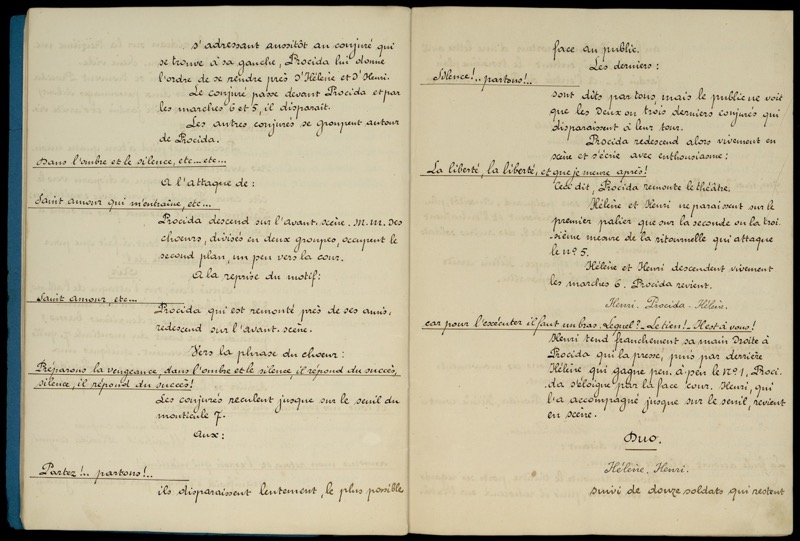 s'adressant aussitôt au conjuré qui
se trouve à sa gauche, Procida lui donne
l'ordre de se rendre près d'Hélène et d'Henri.
Le conjuré passe devant Procida et par
les marches 6 et 5, il disparaît.
Les autres conjurés se groupent autour
de Procida.
Dans l'ombre et le silence, etc... etc...
A l'attaque de:
Saint amour qui m'entraîne, etc...
Procida descend sur l'avant-scène. M.M. des
chœurs, divisés en deux groupes, occupent le
second plan, un peu vers la cour.
A la reprise du motif:
Saint amour, etc...
Procida qui est remonté près de ses amis,
redescend sur l'avant-scène.
Vers la phrase du chœur:
Préparons la vengeance, dans l'ombre et le silence, il répond du succès,
silence, il répond du succès!
Les conjurés reculent jusque sur le seuil du
monticule 7.
Aux:
Partez!.. partons!..
ils disparaissent lentement, le plus possible
face au public.
Les derniers:
Silence!.. partons!..
sont dits par tous, mais le public ne voit
que les deux ou trois derniers conjurés qui
disparaissent à leur tour.
Procida redescend alors vivement en
scène et s'écrie avec enthousiasme:
La liberté, la liberté, et que je meure après!
Ceci dit, Procida remonte le théâtre.
Hélène et Henri ne paraissent sur le
premier palier que sur la seconde ou la troi-
-sième mesure de la ritournelle qui attaque
le nº 5.
Hélène et Henri descendent vivement
les marches 6. Procida revient.
Henri. Procida. Hélène.
car pour l'exécuter il faut un bras. Lequel? _ Le tien! _ Il est à vous!
Henri tend franchement sa main droite à
Procida qui la presse, puis par derrière
Hélène qui gagne peu à peu le nº 1, Proci-
da s'éloigne par la face cour. Henri, qui
l'a accompagné jusque sur le seuil, revient
en scène.
Duo.
Hélène. Henri.
suivi de douze soldats qui restent